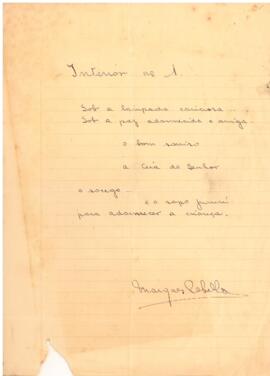 Interior nº 1.
Sob a lampada cariciosa...
Sob a paz adormecida e amiga
o bom sorriso
a Ceia do Senhor
o socego...
e o sapo jururú
para adormecer a criança.
Marques Rebello